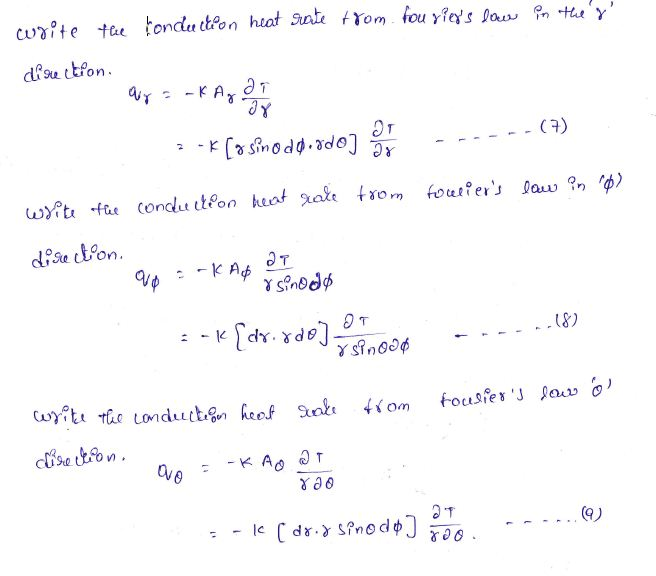 write the conduction heat rate from fourier's law in the 'r'
direction.
q_r = -K A_r ∂T/∂r
= -K [r sinθ dφ . r dθ] ∂T/∂r ------ (7)
write the conduction heat rate from fourier's law in 'φ'
direction.
q_φ = -K A_φ ∂T/r sinθ ∂φ
= -K [dr . r dθ] ∂T/r sinθ ∂φ ------ (8)
write the conduction heat rate from fourier's law 'θ'
direction.
q_θ = -K A_θ ∂T/r ∂θ
= -k [dr . r sinθ dφ] ∂T/r ∂θ. ------ (9)